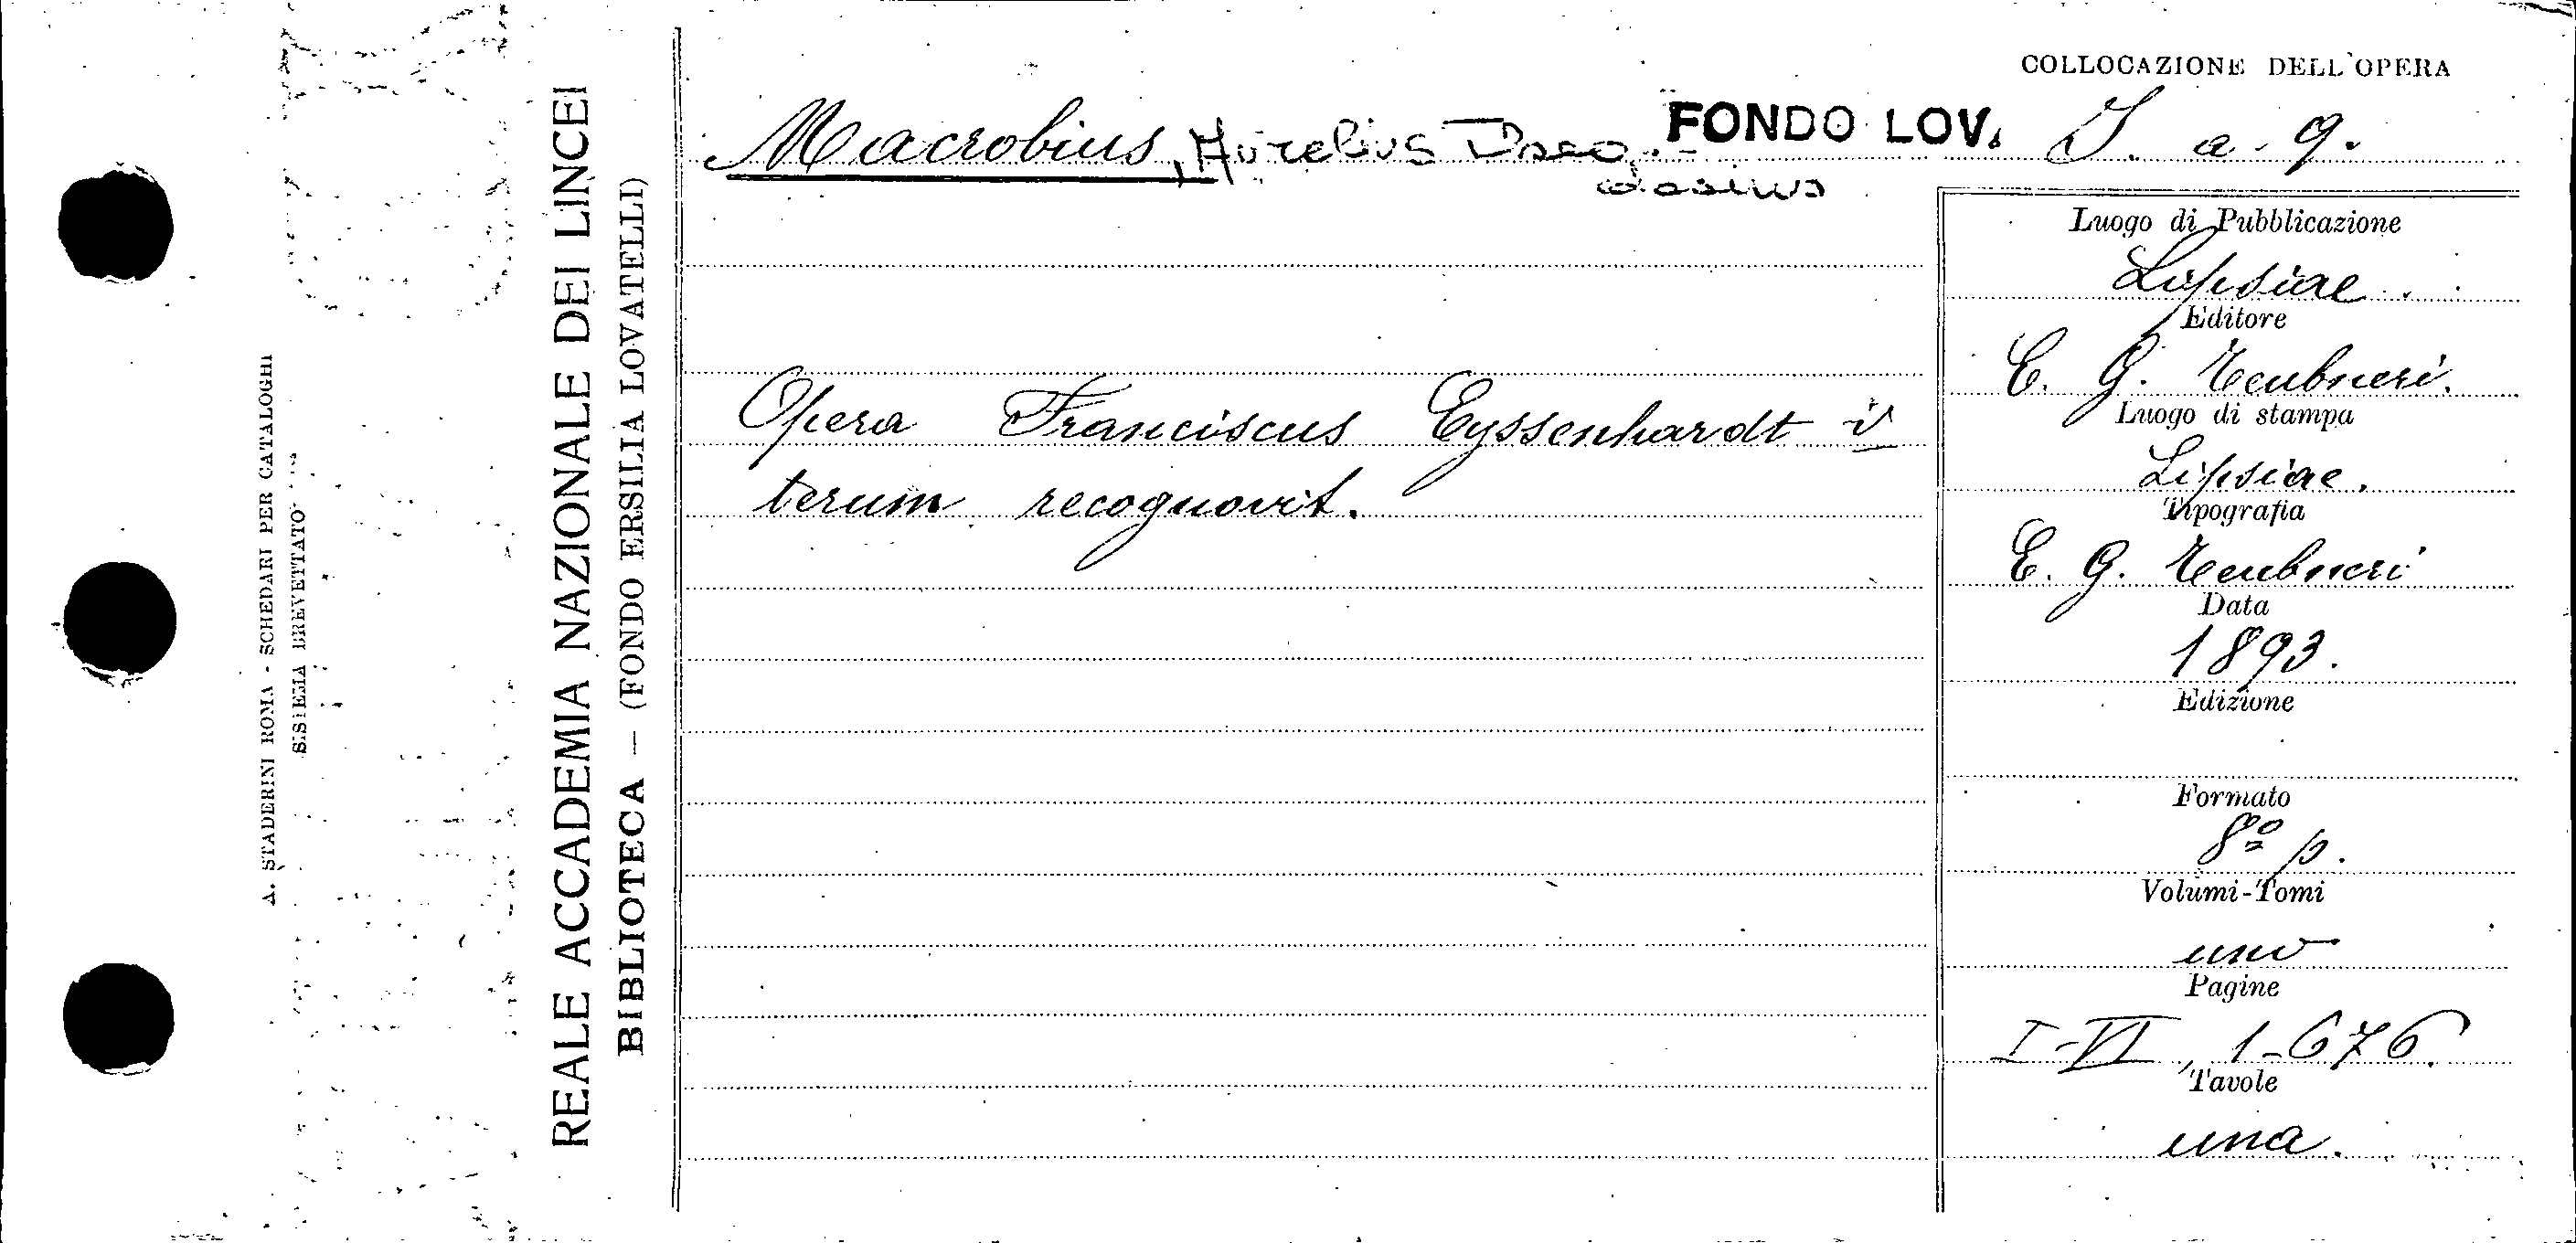 COLLOCAZIONE DELL'OPERA
Macrobius, Aurelius
FONDO LOV. I. a. 9.
Opera Franciscus Eyssenhardt i
terum recognovit.
Luogo di Pubblicazione
Lipsiae.
Editore
G. Teubneri.
Luogo di stampa
Lipsiae.
Tipografia
G. Teubneri
Data
1893.
Edizione
Formato
8º p.
Volumi-Tomi
uno
Pagine
I-VI, 1-676.
Tavole
una.
REALE ACCADEMIA NAZIONALE DEI LINCEI
BIBLIOTECA — (FONDO ERSILIA LOVATELLI)
A. STADERINI ROMA - SCHEDARI PER CATALOGHI
SISTEMA BREVETTATO